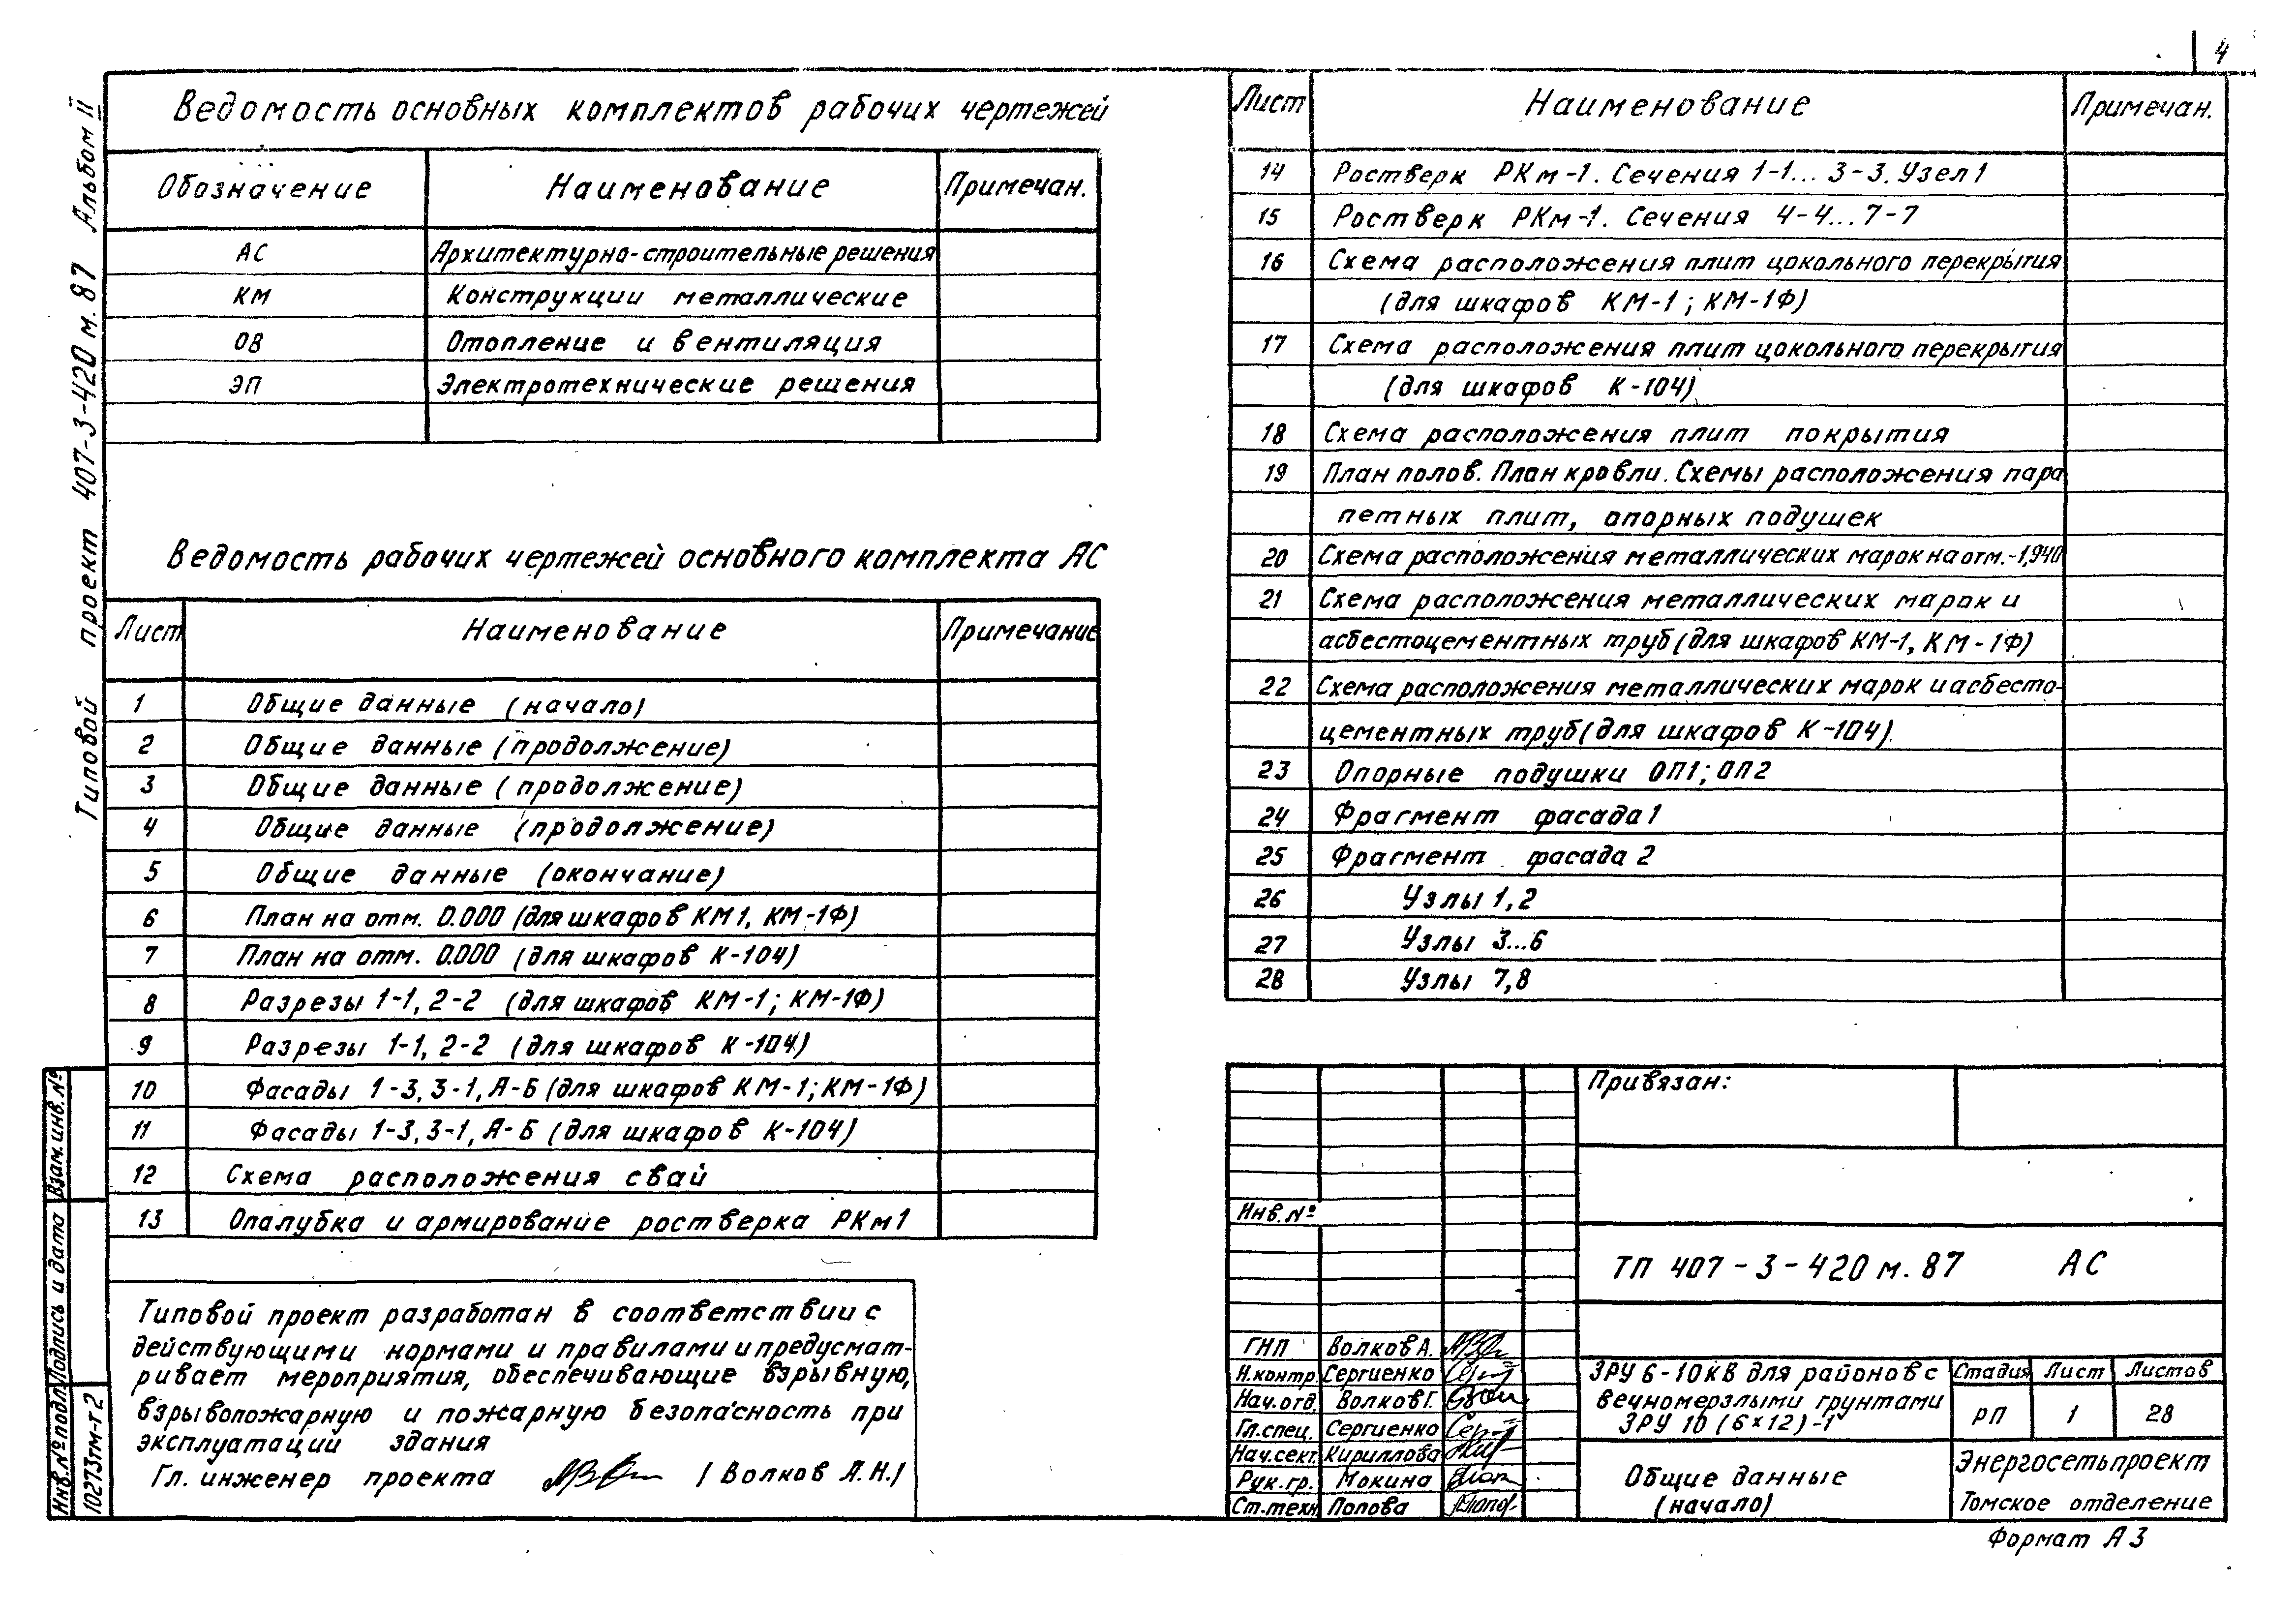 4
Типовой проект 407-3-420 м.87 Альбом II
Ведомость основных комплектов рабочих чертежей
Обозначение Наименование Примечан.
АС Архитектурно-строительные решения
КМ Конструкции металлические
ОВ Отопление и вентиляция
ЭП Электротехнические решения
Ведомость рабочих чертежей основного комплекта АС
Лист Наименование Примечание
1 Общие данные (начало)
2 Общие данные (продолжение)
3 Общие данные (продолжение)
4 Общие данные (продолжение)
5 Общие данные (окончание)
6 План на отм. 0.000 (для шкафов КМ1, КМ-1Ф)
7 План на отм. 0.000 (для шкафов К-104)
8 Разрезы 1-1, 2-2 (для шкафов КМ-1; КМ-1Ф)
9 Разрезы 1-1, 2-2 (для шкафов К-104)
10 Фасады 1-3, 3-1, А-Б (для шкафов КМ-1; КМ-1Ф)
11 Фасады 1-3, 3-1, А-Б (для шкафов К-104)
12 Схема расположения свай
13 Опалубка и армирование ростверка РКм1
Типовой проект разработан в соответствии с
действующими нормами и правилами и предусмат-
ривает мероприятия, обеспечивающие взрывную,
взрывопожарную и пожарную безопасность при
эксплуатации здания
Гл. инженер проекта /Волков А.Н./
Взам.инв.№
Подпись и дата
Инв.№ подл.
10273тм-т2
Лист Наименование Примечан.
14 Ростверк РКм-1. Сечения 1-1...3-3. Узел 1
15 Ростверк РКм-1. Сечения 4-4...7-7
16 Схема расположения плит цокольного перекрытия
(для шкафов КМ-1; КМ-1Ф)
17 Схема расположения плит цокольного перекрытия
(для шкафов К-104)
18 Схема расположения плит покрытия
19 План полов. План кровли. Схемы расположения пара
петных плит, опорных подушек
20 Схема расположения металлических марок на отм.-1,940
21 Схема расположения металлических марок и
асбестоцементных труб (для шкафов КМ-1, КМ-1Ф)
22 Схема расположения металлических марок и асбесто-
цементных труб (для шкафов К-104)
23 Опорные подушки ОП1; ОП2
24 Фрагмент фасада 1
25 Фрагмент фасада 2
26 Узлы 1,2
27 Узлы 3...6
28 Узлы 7,8
Привязан:
Инв.№
ТП 407-3-420 м.87 АС
ГНП Волков А.
Н.контр. Сергиенко
Нач.отд. Волков Г.
Гл.спец. Сергиенко
Нач.сект. Кириллова
Рук.гр. Мокина
Ст.техн. Попова
ЗРУ 6-10кВ для районов с
вечномерзлыми грунтами
ЗРУ 10 (6×12)-1
Стадия Лист Листов
РП 1 28
Общие данные
(начало)
Энергосетьпроект
Томское отделение
Формат А3